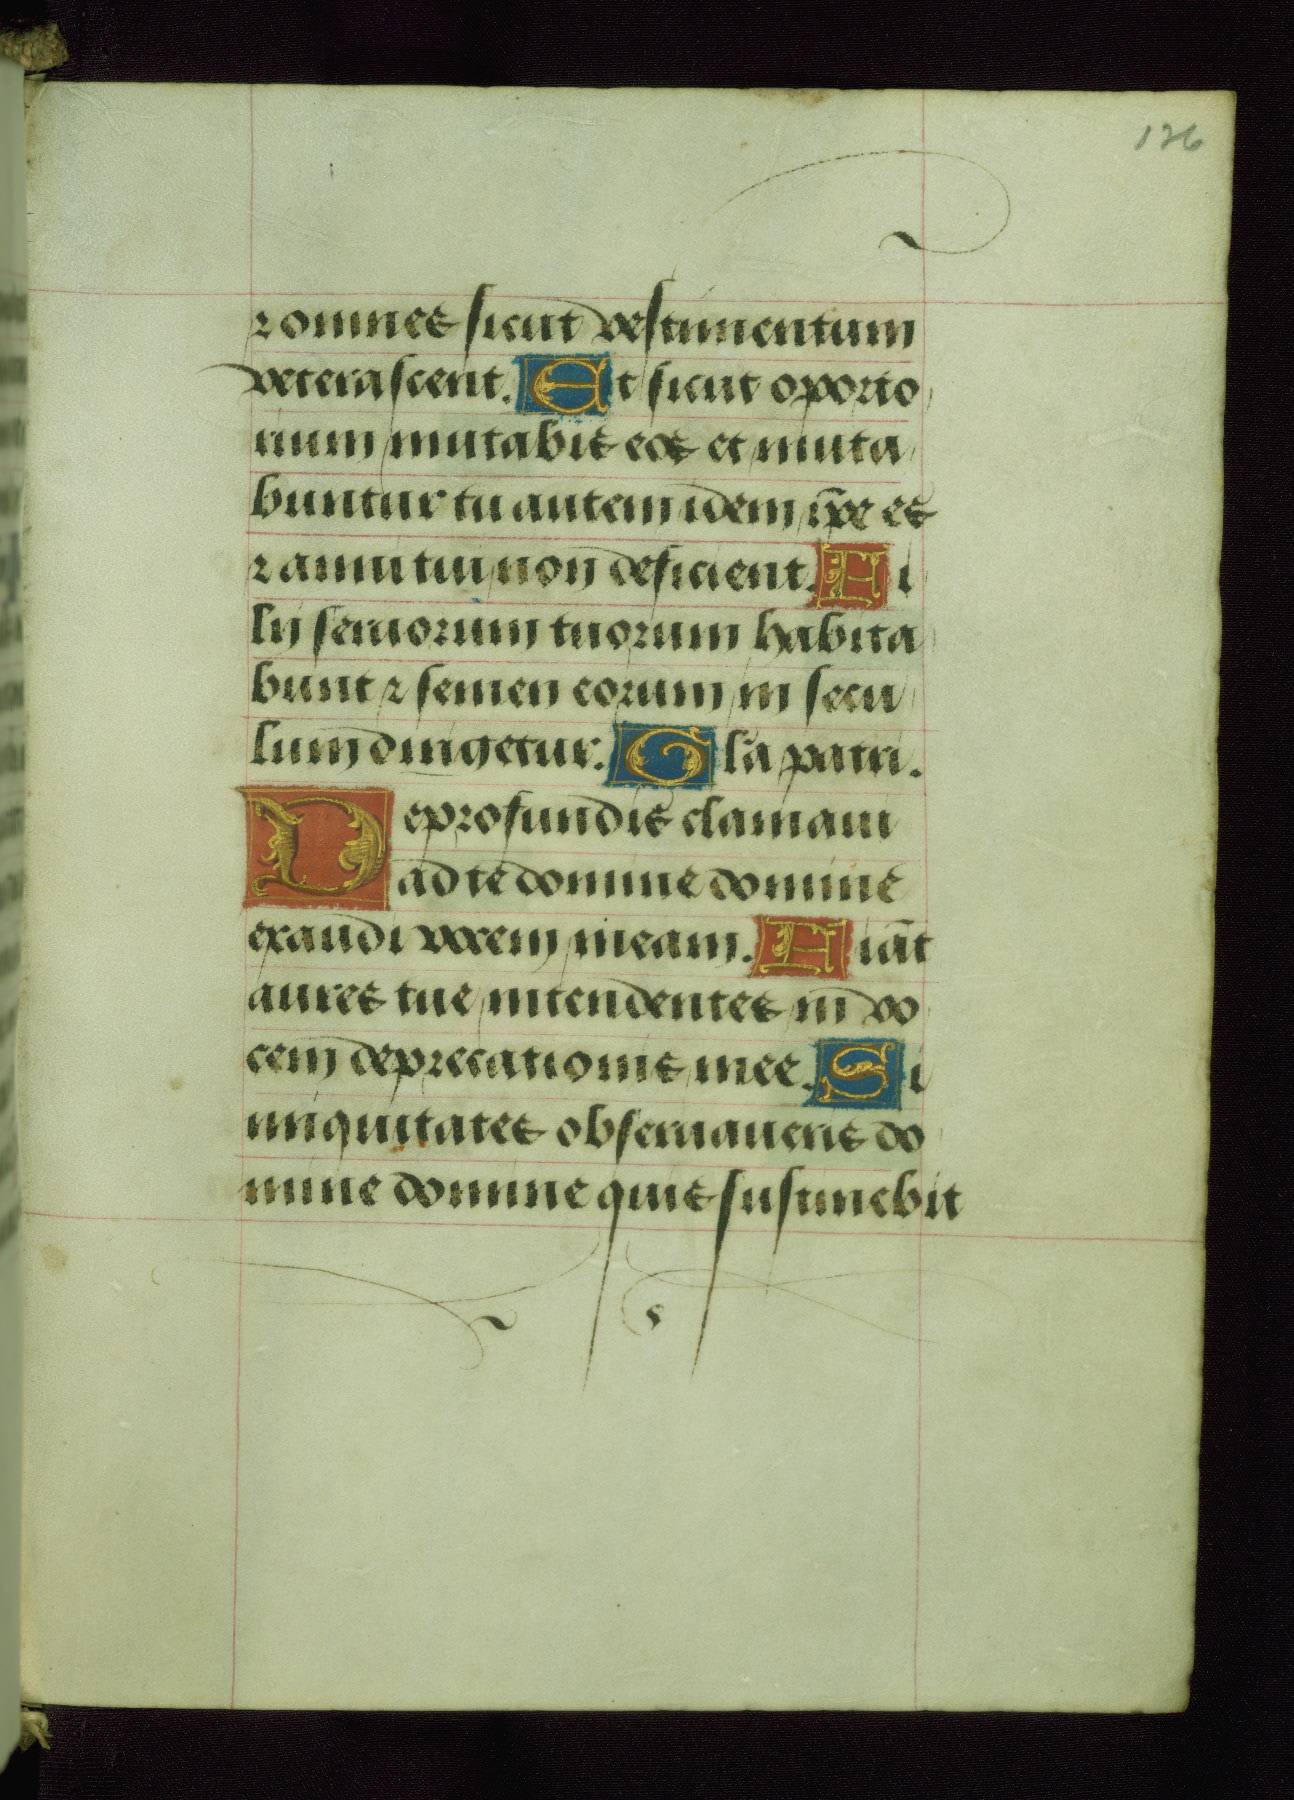 126
⁊ omnes sicut vestimentum
veterascent. Et sicut oporto
rium mutabis eos et muta
buntur tu autem idem ip̄e es
⁊ anni tui non deficient. Fi
lij seruorum tuorum habita
bunt ⁊ semen eorum in secu
lum dirigetur. Gl̄a patri.
De profundis clamaui
ad te domine domine
exaudi vocem meam. Fiāt
aures tue intendentes in vo
cem deprecationis mee. Si
iniquitates obseruaueris do
mine domine quis sustinebit